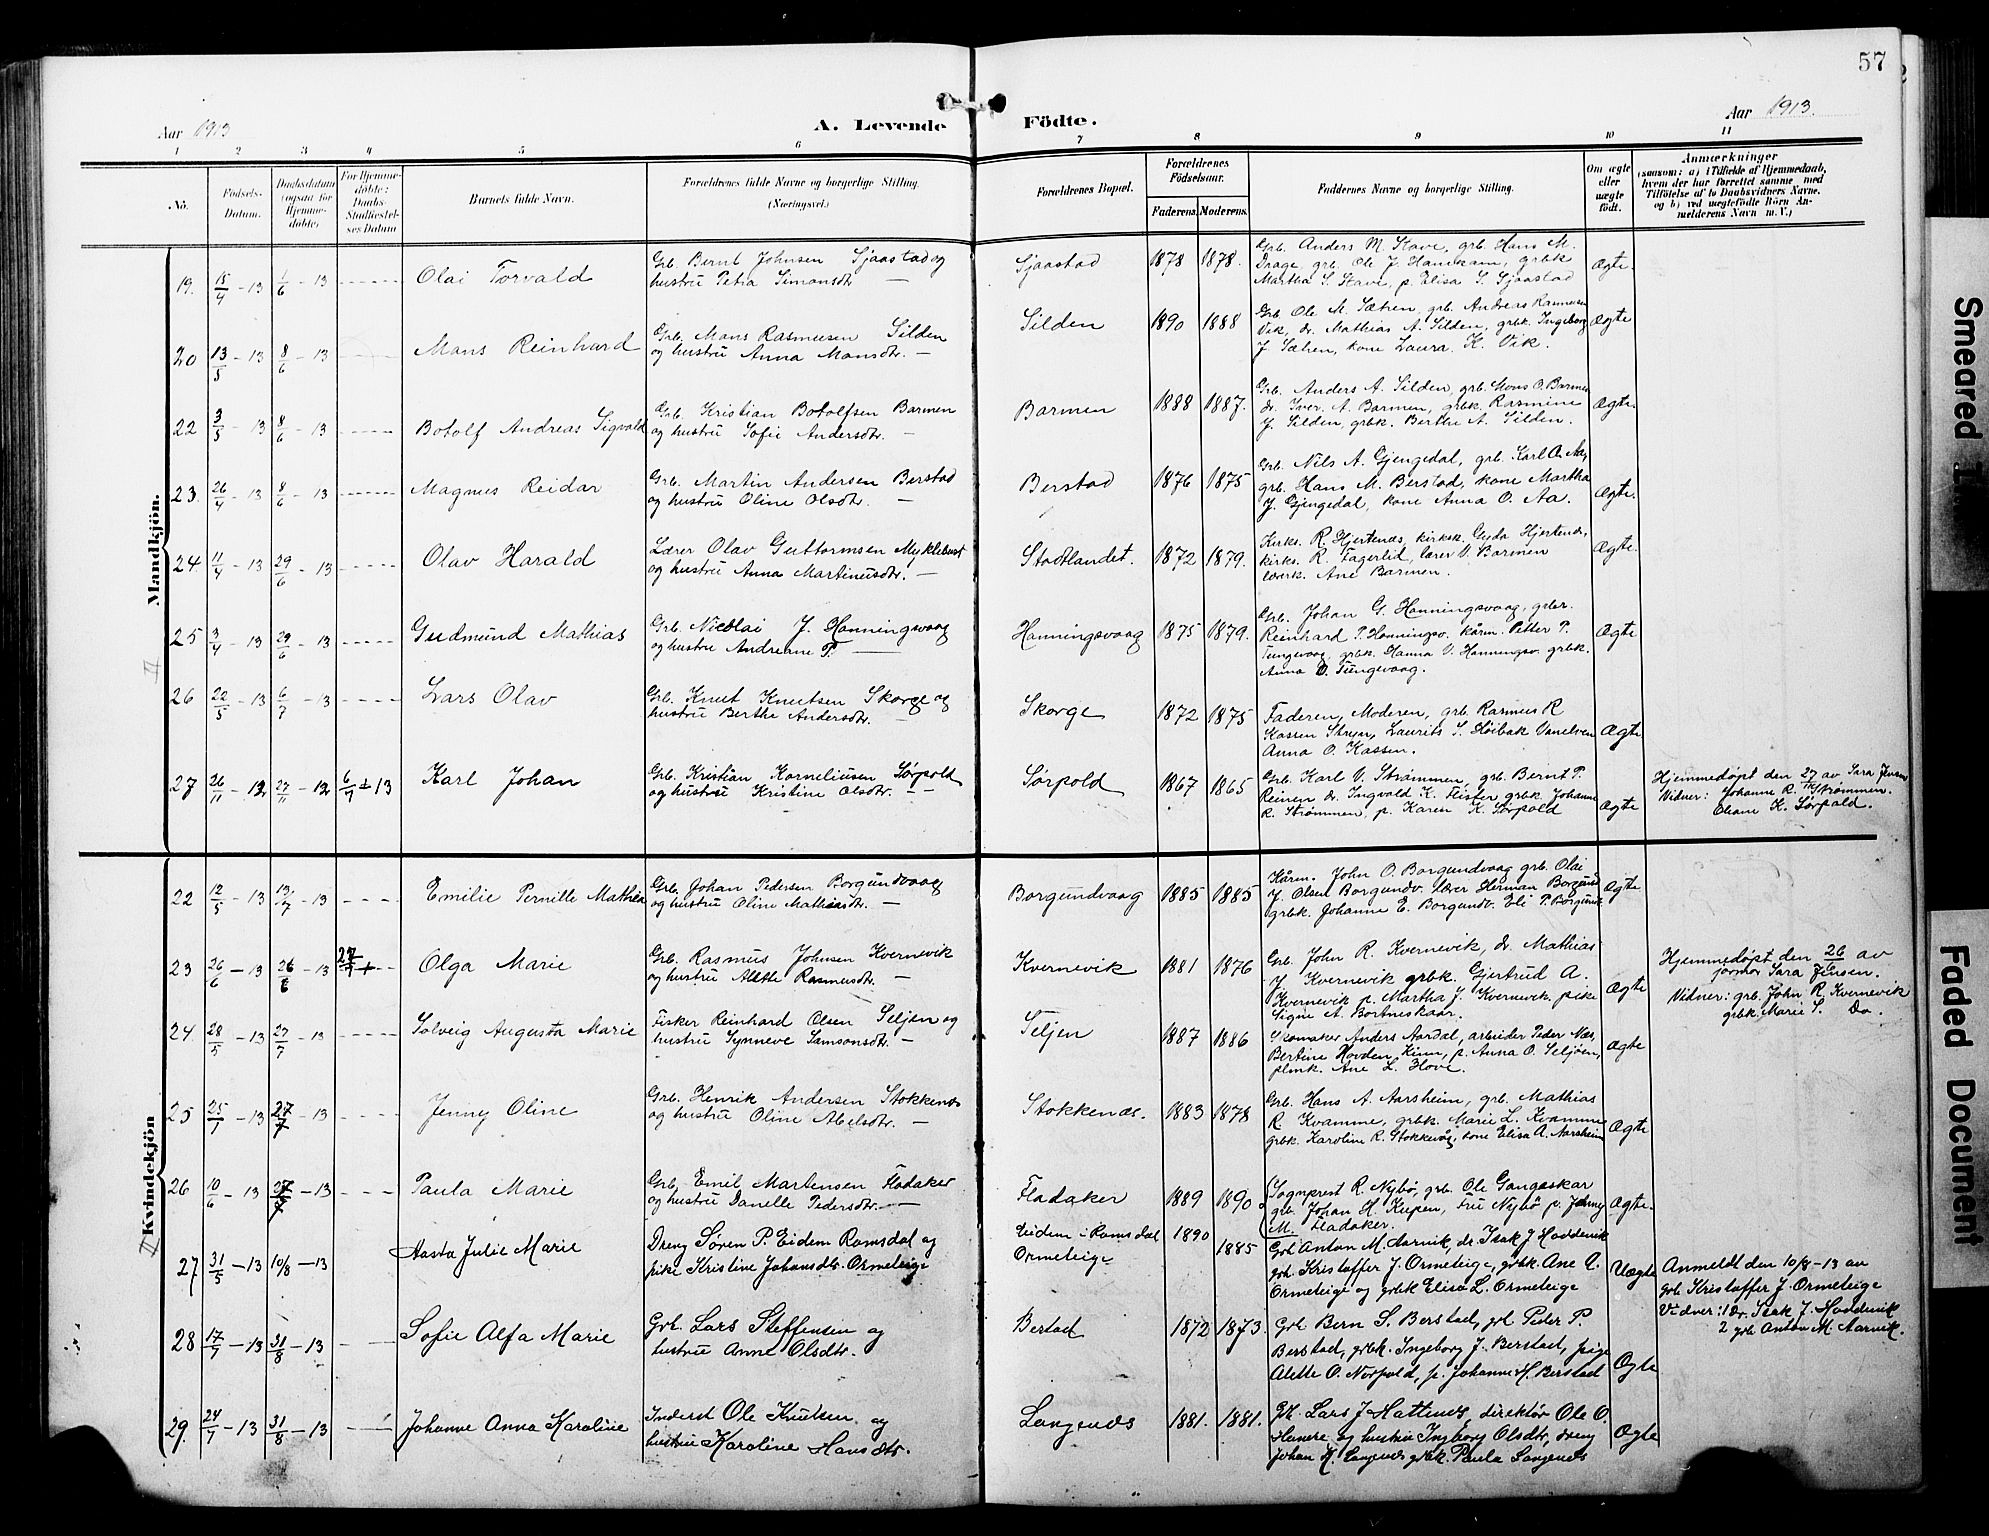 57
Aar 1913
A. Levende Födte.
Aar 1913.
1 2 3 4 5 6 7 8 9 10 11
No.
Födsels-Datum.
Daabsdatum (ogsaa for Hjemme-döbte)
For Hjemme-döbte: Daabs-Stadfæstel-ses Datum
Barnets fulde Navn.
Forældrenes fulde Navne og borgerlige Stilling.
(Næringsvei.)
Forældrenes Bopæl.
Forældrenes Födselsaar.
Faderens. Moderens.
Faddernes Navne og borgerlig Stilling.
Om ægte eller uægte födt.
Anmærkninger
(saasom: a) i Tilfælde af Hjemmedaab, hvem der har forrettet samme med Tilföielse af to Daabsvidners Navne. og b) ved uægtefödte Börn Anmelderens Navn m. V.)
Mandkjön.
19. 15/4 - 13 1/6 - 13 Olai Torvald
Grb. Bernt Johnsen Sjaastad og
hustru Petra Simonsdtr. —
Sjaastad 1878 1878.
Grb. Anders M. Stave, grb. Hans M.
Drage, grb. Ole J. Hamekam, grbk
Martha S. Stave, p. Elisa S. Sjaastad
Ægte.
20 13/5 - 13 8/6 - 13 Mans Reinhard
Grb. Mans Rasmusen Silden
og hustru Anna Monsdtr. —
Silden 1890 1888
Grb. Ole M. Sætren, grb. Andreas Rasmusen
Vik, dr. Mathias A. Silden, grbk. Ingeborg
J. Sætren, kone Laura K. Vik.
Ægte
22 3/5 - 13 8/6 - 13 Botolf Andreas Sigvald
Grb. Kristian Botolfsen Barmen
og hustru Sofie Andersdtr. —
Barmen 1888 1887.
Grb. Anders A. Silden, grb. Mons O. Barmen
dr. Iver A. Barmen, grbk. Rasmine
J. Silden, grbk. Berthe A. Silden.
Ægte.
23. 26/4 - 13 8/6 - 13 Magnus Reidar
Grb. Martin Andersen Berstad
og hustru Oline Olsdtr. —
Berstad 1876 1875
Grb. Nils A. Gjengedal, grb. Karl O. Aa,
grb. Hans M. Berstad, kone Martha
J. Gjengedal, kone Anna O. Aa.
Ægte.
24 11/4 - 13 29/6 - 13 Olav Harald
Lærer Olav Guttormsen Myklebust
og hustru Anna Martinusdtr. —
Stadtlandet. 1872 1879.
Kirks. R. Hjertenæs, kirksk. Gyda Hjertenæs,
kirks. R. Fagerlid, lærer V. Barmen
lærerk. Ane Barmen.
Ægte.
25 3/4 - 13 29/6 - 13 Gudmund Mathias
Grb. Nicolai J. Honningsvaag
og hustru Andreane P. —
Honningsvaag 1875 1879.
Grb. Johan G. Honningsvaag, grbr.
Reinhard P. Honningsv. kårm. Petter P.
Tungevaag, grbk. Hanna V. Honningsv. grbk.
Anna O. Tungevaag.
Ægte
26 22/5 - 13 6/7 - 13 Lars Olav
Grb. Knut Knutsen Skorge og
hustru Berthe Andersdtr. —
Skorge 1872 1875
Faderen, Moderen, grb. Rasmus R
Kassen Stryn, Laurits S. Vanelven
Anna O. Kassen.
Ægte
27 26/11 - 12 27/11 - 12 6/7 + 13 Karl Johan
Grb. Kristian Korneliusen Sørpold
og hustru Kristine Olsdtr. —
Sørpold 1867 1865
Grb. Karl V. Strømmen, grb. Bernt P.
Reinen dr. Ingvald K. Fister grbk Johanne
R. Strømmen, p. Karen K. Sørpold
Ægte
Hjemmedøpt den 27/11 av Sara Jensen
Vidner: Johanne R. Strømmen.
K. Sørpold.
Kvindekjön
22 12/5 - 13 13/7 - 13 Emilie Pernille Mathea
Grb. Johan Pedersen Borgundvaag
og hustru Oline Mathiasdtr. —
Borgundvaag 1885 1885
Kårm. John O. Borgundvaag grb. Olai
J. Olsen Borgundv. Lærer Herman Borgund
grbk. Johanne E. Borgundv. Eli P. Borgund
Ægte
23 26/6 - 13 26/6 - 13 27/7 + Olga Marie
Grb. Rasmus Johnsen Kvernevik
og hustru Alette Rasmusdtr. —
Kvernevik 1881 1876
Grb. John R. Kvernevik, dr. Mathias
J. Kvernevik grbk. Gjertrud A.
Kvernevik p. Martha J. Kvernevik, pike
Signe A. Bortneskaar.
Ægte
Hjemmedøpt den 26/6 av
jormor Sara Jensen.
Vidner: grb. John R. Kvernevik
grbk. Marie S. Do.
24. 28/5 - 13 27/7 - 13 Solveig Augusta Marie
Fisker Reinhard Olsen Seljen og
hustru Synneve Samsonsdtr. —
Seljen 1887 1886
Skomaker Anders Aardal, arbeider Peder Næs,
Bertine Hovden Kinn, p. Anna O. Seljøen,
plmk. Ane L. Hove.
Ægte
25 25/7 - 13 27/7 - 13 Jenny Oline
Grb. Henrik Andersen Stokkenes
og hustru Oline Abelsdtr. —
Stokkenæs. 1883 1878
Grb. Hans A. Aarsheim, grb. Mathias
R. Kvamme, grbk. Marie L. Kvamme
grbk. Karoline R. kone Elisa A. Aarsheim
Ægte
26 10/6 - 13 - 13 Paula Marie
Grb. Emil Martensen Fladaker
og hustru Danelle Pedersdtr. —
Fladaker 1889 1890
Sogneprest R. Nybø, grb. Ole Gangeskar
grb. Johan H. Kupen, Fru Nybø p. Jenny
M. Fladaker.
Ægte.
27 31/5 - 13 10/8 - 13 Aasta Julie Marie
Dreng Søren P. Eidem Romsdal og
pike Kristine Johansdtr. Ormeteige
Eidem i Romsdal 1890
Ormeteige 1885
Grb Anton M. Aarvik, dr. Isak J Hoddevik
grb. Kristoffer J. Ormeteige, grbk. Ane A.
Ormeteige og grbk Elisa L. Ormeteige
Uægte
Anmeldt den 10/8 - 13 av
grb. Kristoffer J. Ormeteige
Vidner: 1 Dr. Isak J. Hoddevik
2 grb Anton M. Aarvik.
28 17/7 - 13 31/8 - 13 Sofie Alfa Marie
Grb. Lars Steffensen og
hustru Anne Olsdtr. -
Berstad 1872 1873.
Grb Bern S. Berstad, grb Peder P.
Berstad, grbk. Ingeborg J. Berstad, pige
Alette O. Nørpold, p. Johanne H. Berstad
Ægte
29. 24/7 - 13 31/8 - 13 Johanne Anna Karoline
Inderst Ole Knutsen og
hustru Karoline Hansdtr.
Langenæs 1881. 1881.
Grb. Lars J. Hattenes, direktør Ole O.
og hustru Ingborg Olsdtr, dreng
Johan K. Langenæs grbk. Paula Langenæs
Ægte
Smeared
Faded Document